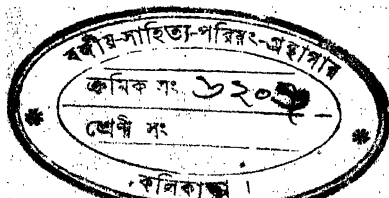 বঙ্গীয়-সাহিত্য-পরিষৎ-গ্রন্থাগার
ক্রমিক নং ৬২০
শ্রেণী নং
কলিকাতা ।